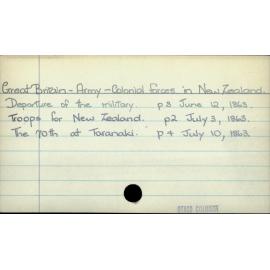 Great Britain - Army - Colonial forces in New Zealand.
Departure of the military. p3 June 12, 1863.
Troops for New Zealand. p2 July 3, 1863.
The 70th at Taranaki. p4 July 10, 1863.
OTAGO COLONIST